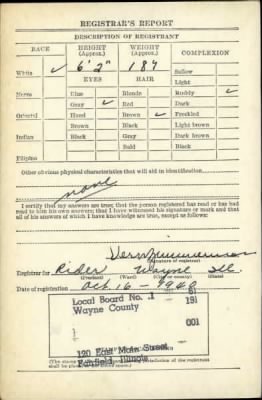 REGISTRAR'S REPORT
DESCRIPTION OF REGISTRANT
RACE HEIGHT (Approx.) WEIGHT (Approx.) COMPLEXION
White ✓ 6' 2" 187 Sallow
EYES HAIR Light
Negro Blue Blonde Ruddy ✓
Gray ✓ Red Dark
Oriental Hazel Brown ✓ Freckled
Brown Black Light brown
Indian Black Gray Dark brown
Bald Black
Filipino
Other obvious physical characteristics that will aid in identification
none
I certify that my answers are true; that the person registered has read or has had
read to him his own answers; that I have witnessed his signature or mark and that
all of his answers of which I have knowledge are true, except as follows:
(Signature of registrar)
Registrar for Rider Wayne Ill.
(Precinct) (Ward) (City or county) (State)
Date of registration Oct 16 - 1940
Local Board No. 1
Wayne County
191
001
120 East Main Street
Fairfield, Illinois